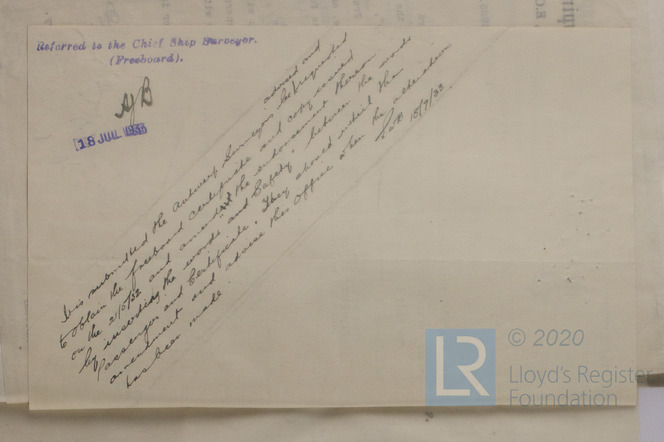 Referred to the Chief Ship Surveyor.
(Freeboard).
AJB
18 JUL 1933
advised and
It is submitted the Antwerp Surveyors be requested
to obtain the freeboard certificate and copy issued
on the 21/10/32 and amend the endorsement thereon
by inserting the words "and Safety" between the words
Passenger and Certificate. They should initial the
amendment and advise this Office when the alteration
has been made.
18/7/33.
© 2020
LR
Lloyd's Register
Foundation